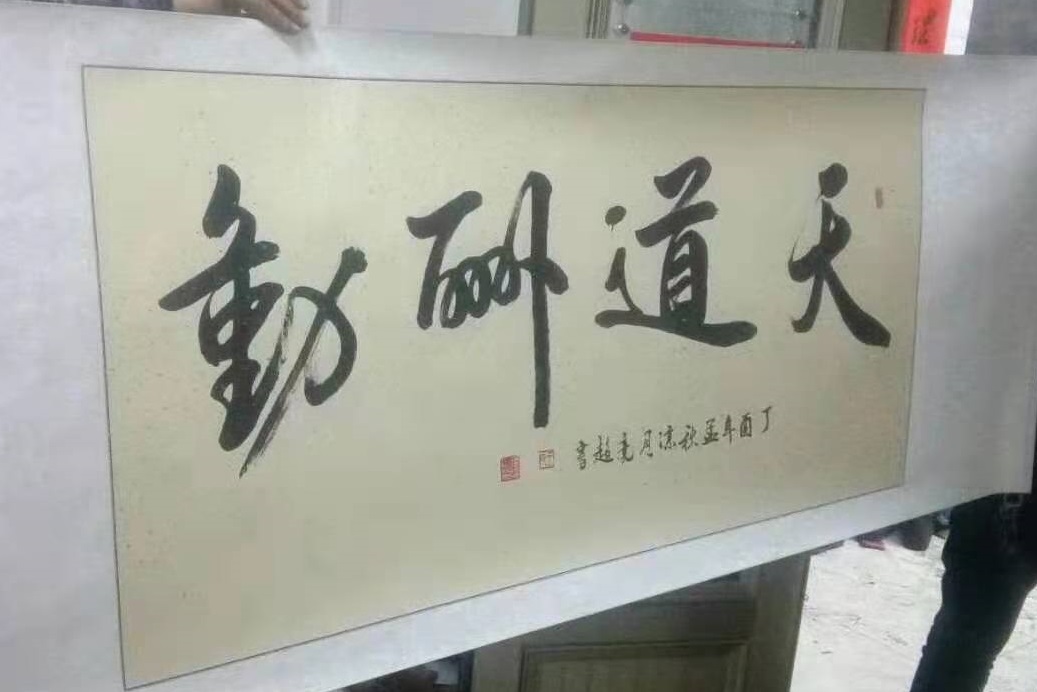 天道酬勤
丁酉年孟秋凉月亮超書